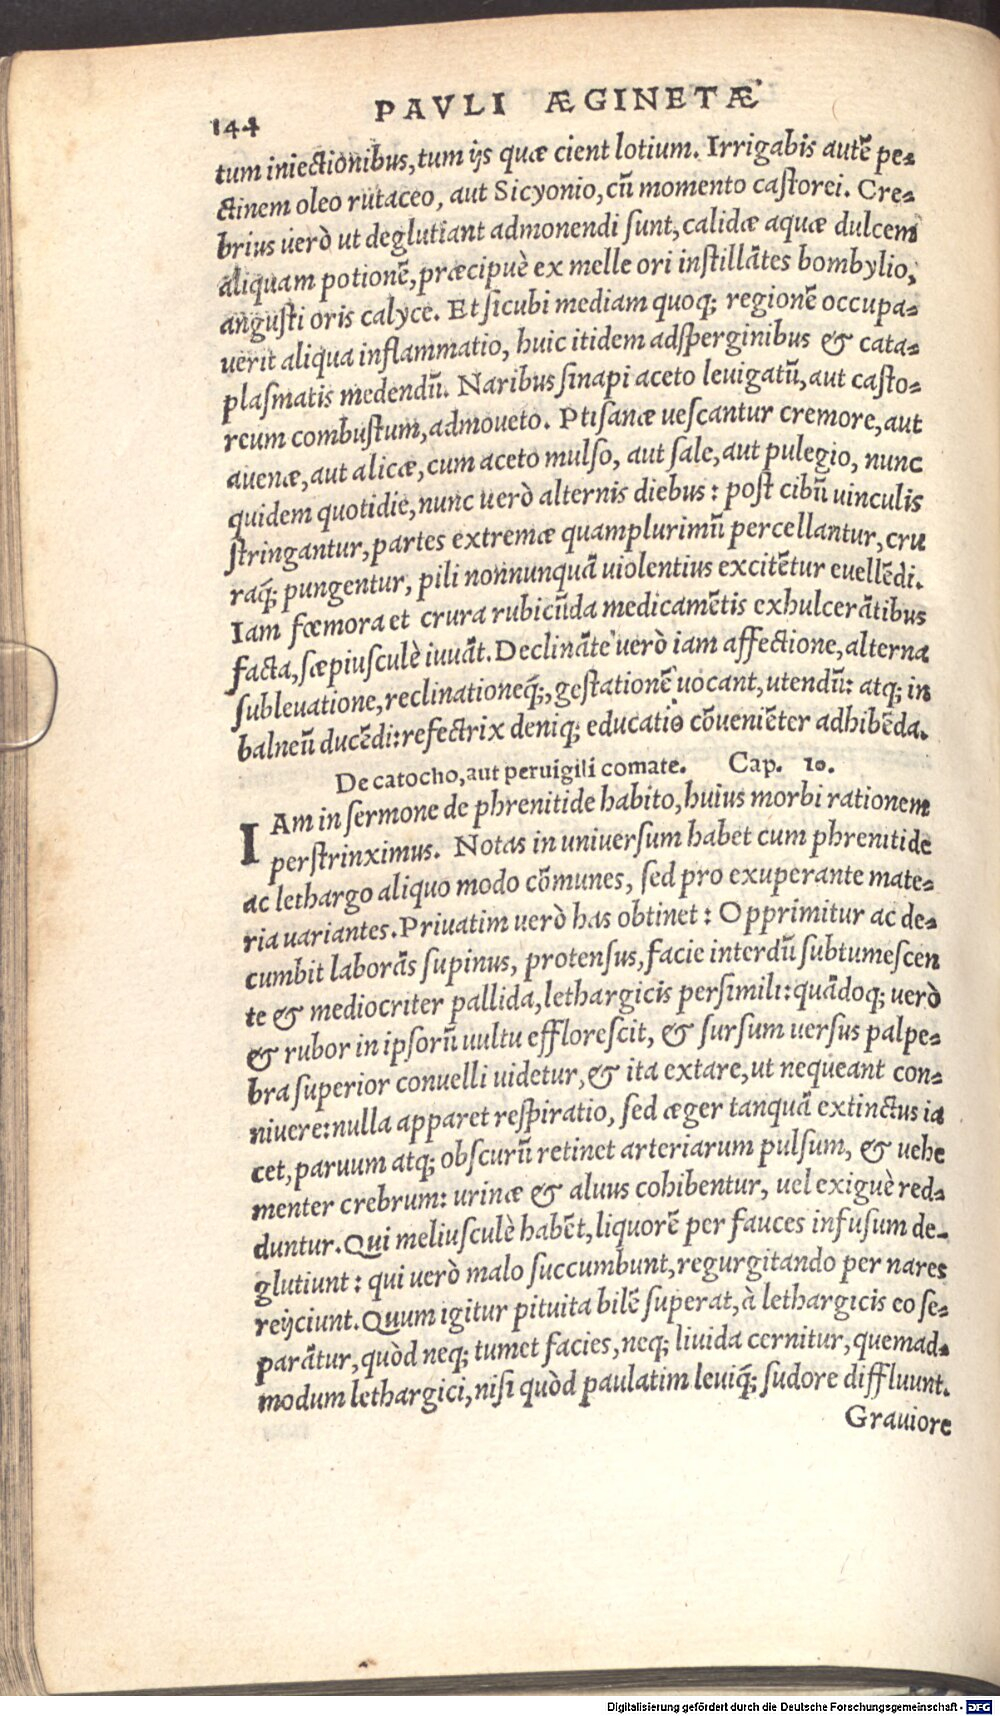 144
PAVLI ÆGINETÆ
tum iniectionibus, tum ijs quæ cient lotium. Irrigabis autẽ pe-
ctinem oleo rutaceo, aut Sicyonio, cũ momento castorei. Cre-
brius uerò ut deglutiant admonendi sunt, calidæ aquæ dulcem
aliquam potionẽ, præcipuè ex melle ori instillãtes bombylio,
angusti oris calyce. Et sicubi mediam quoq; regionẽ occupa-
uerit aliqua inflammatio, huic itidem adsperginibus & cata-
plasmatis medendũ. Naribus sinapi aceto leuigatũ, aut casto-
reum combustum, admoueto. Ptisanæ uescantur cremore, aut
auenæ, aut alicæ, cum aceto mulso, aut sale, aut pulegio, nunc
quidem quotidie, nunc uerò alternis diebus: post cibũ uinculis
stringantur, partes extremæ quamplurimũ percellantur, cru
raq́; pungentur, pili nonnunquã uiolentius excitẽtur euellẽdi.
Iam fœmora et crura rubicũda medicamẽtis exhulcerãtibus
facta, sæpiusculè iuuãt. Declinãte uerò iam affectione, alterna
subleuatione, reclinationeq́;, gestationẽ uocant, utendũ: atq; in
balneũ ducẽdi: refectrix deniq; educatio cõueniẽter adhibẽda.
De catocho, aut peruigili comate. Cap. 10.
IAm in sermone de phrenitide habito, huius morbi rationem
perstrinximus. Notas in uniuersum habet cum phrenitide
ac lethargo aliquo modo cõmunes, sed pro exuperante mate-
ria uariantes. Priuatim uerò has obtinet: Opprimitur ac de-
cumbit laborãs supinus, protensus, facie interdũ subtumescen
te & mediocriter pallida, lethargicis persimili: quãdoq; uerò
& rubor in ipsorũ uultu efflorescit, & sursum uersus palpe-
bra superior conuelli uidetur, & ita extare, ut nequeant con-
niuere: nulla apparet respiratio, sed æger tanquã extinctus ia
cet, paruum atq; obscurũ retinet arteriarum pulsum, & uehe
menter crebrum: urinæ & aluus cohibentur, uel exiguè red-
duntur. Qui meliusculè habẽt, liquorẽ per fauces infusum de-
glutiunt: qui uerò malo succumbunt, regurgitando per nares
reijciunt. Quum igitur pituita bilẽ superat, à lethargicis eo se-
parãtur, quòd neq; tumet facies, neq; liuida cernitur, quemad-
modum lethargici, nisi quòd paulatim leuiq́; sudore diffluunt.
Grauiore
Digitalisierung gefördert durch die Deutsche Forschungsgemeinschaft - DFG